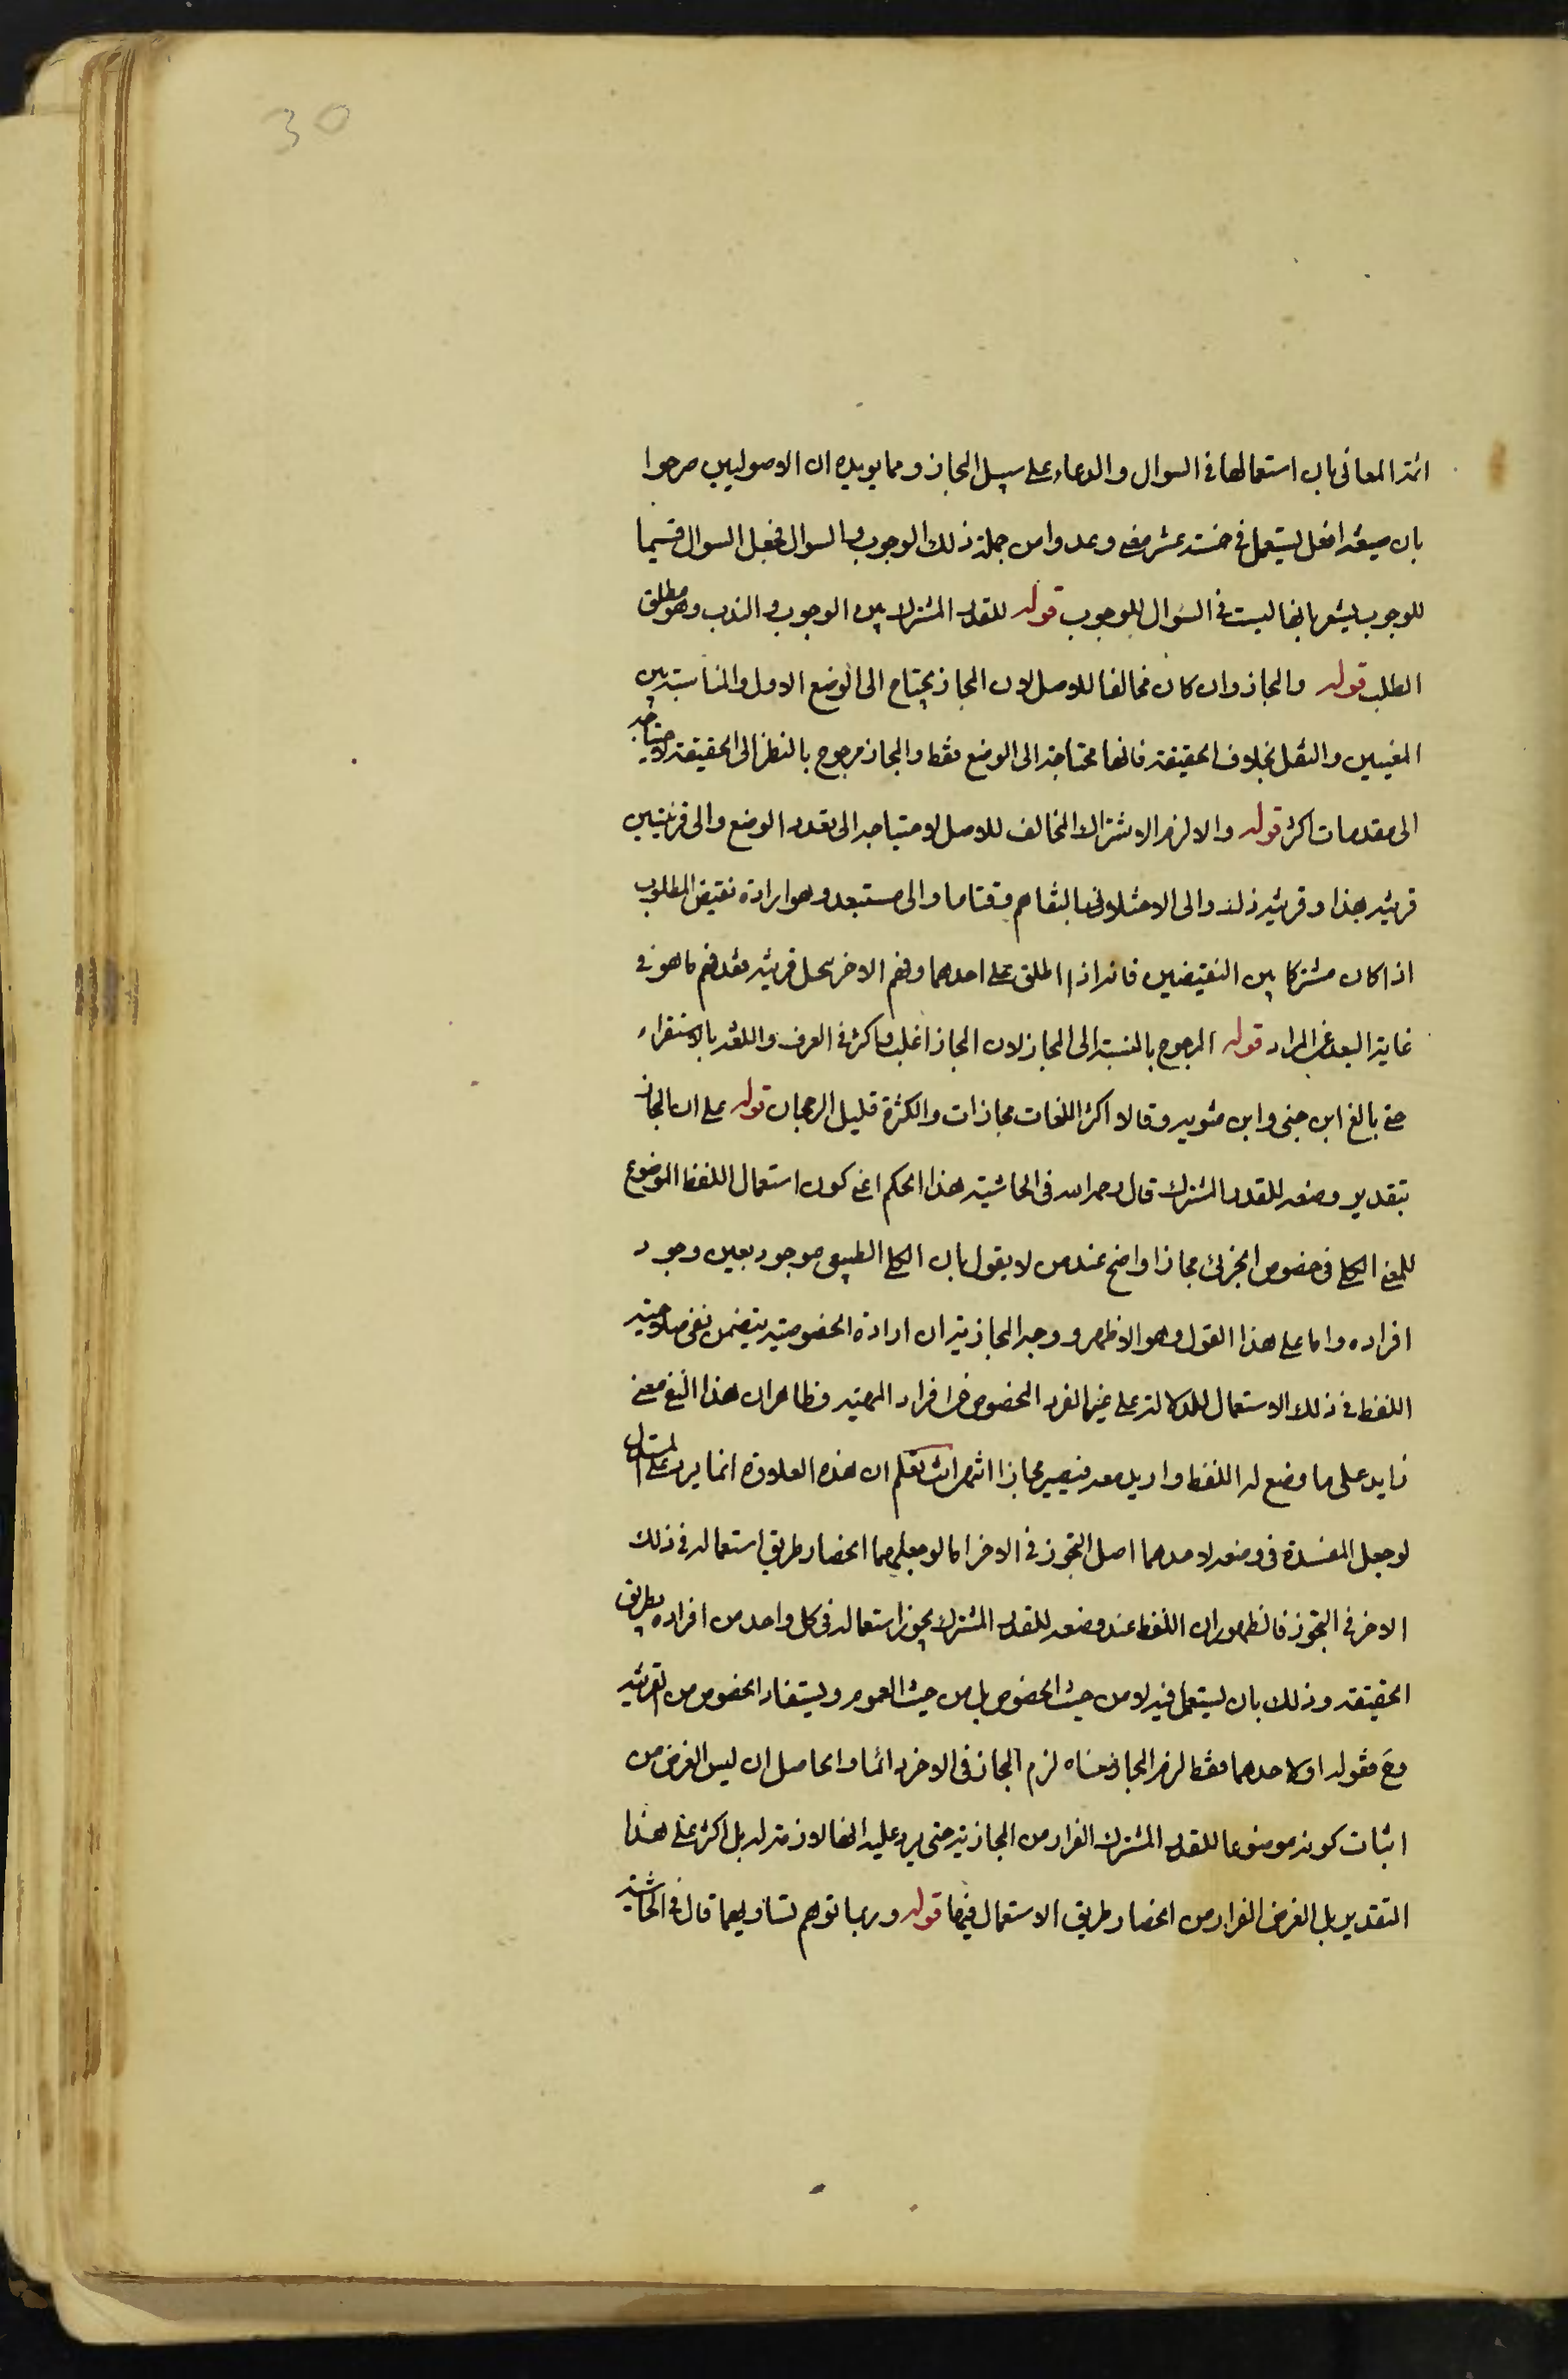 30
ائمة المعانى بان استعمالها فى السوال والدعاء على سبيل المجاز ومما يويده ان الاصوليين صرحوا
بان صيغة افعل يستعمل فى خمسة عشر معنى وعدوا من جملة ذلك الوجوب والسوال فجعل السوال قسيما
للوجوب يشعر بانها ليست فى السوال للوجوب قوله للقدر المشترك بين الوجوب والندب وهو مطلق
الطلب قوله والمجاز وان كان مخالفا للاصل لان المجاز يحتاج الى الوضع الاول والمناسبة بين
المعنيين والنقل بخلاف الحقيقة فانها محتاجة الى الوضع فقط والمجاز مرجوح بالنظر الى الحقيقة لاحتياجه
الى مقدمات اكثر قوله والا لزم الاشتراك المخالف للاصل لاحتياجه الى تعدد الوضع والى قرينتين
قرينة هذا وقرينة ذلك والى الاختلال بالتفاهم والى مستبعد وهو ارادة نقيض المطلوب
اذا كان مشتركا بين النقيضين فانه اذا اطلق على احدهما وفهم الاخر بتخيل قرينة فقد فهم ما هو فى
غاية البعد عن المراد قوله المرجوح بالنسبة الى المجاز لان المجاز اغلب واكثر فى العرف واللغة بالاستقراء
حتى بالغ ابن جنى وابن متويه وقالا اكثر اللغات مجازات والكثرة قليل الرجحان قوله على ان المجاز
بتقدير وضعه للقدر المشترك قال رحمه الله فى الحاشية هذا الحكم اعنى كون استعمال اللفظ الموضوع
للمعنى الكلى فى خصوص الجزئى مجازا واضح عند من لا يقول بان الكلى الطبيعى موجود بعين وجود
افراده واما على هذا القول وهو الاظهر ووجه المجازية ان ارادة الخصوصية يتضمن نفى صلاحية
اللفظ فى ذلك الاستعمال للدلالة على غير الفرد المخصوص من افراد المهية وظاهر ان هذا النفى معنى
زايد على ما وضع له اللفظ واريد معه فيصير مجازا انتهى وانت تعلم ان هذه العلاوة انما يرد على المستدل
لو جعل المفسدة فى وضعه لاحدهما اصل التجوز فى الاخر اما لو جعلهما انحصار طريق استعماله فى ذلك
الاخر فى التجوز فالظهوران اللفظ عند وضعه للقدر المشترك يجوز استعماله فى كل واحد من افراده بطريق
الحقيقة وذلك بان يستعمل فيه لا من حيث الخصوص بل من حيث العموم ويستفاد الخصوص من القرينة
وح فقوله او لاحدهما فقط لزم المجاز معناه لزم المجاز فى الاخر دائما والحاصل ان ليس الغرض من
اثبات كونه موضوعا للقدر المشترك الفرار من المجازية حتى يرد عليه انها لازمة له بل اكثر على هذا
التقدير بل الغرض الفرار من انحصار طريق الاستعمال فيها قوله وربما توهم تساويهما قال فى الحاشية